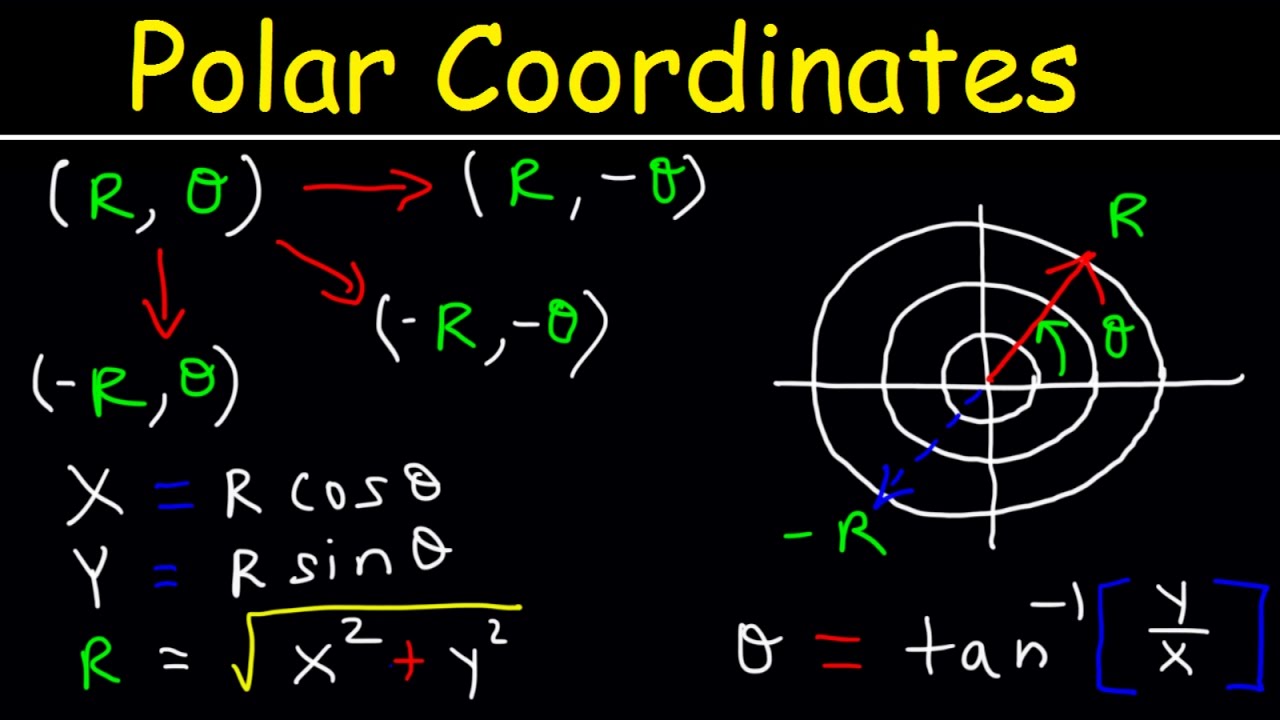 Polar Coordinates
(R, θ) → (R, -θ)
(-R, -θ)
(-R, θ)
X = R cosθ
Y = R sinθ
R = √x² + y²
R
θ
-R
θ = tan⁻¹ [y/x]